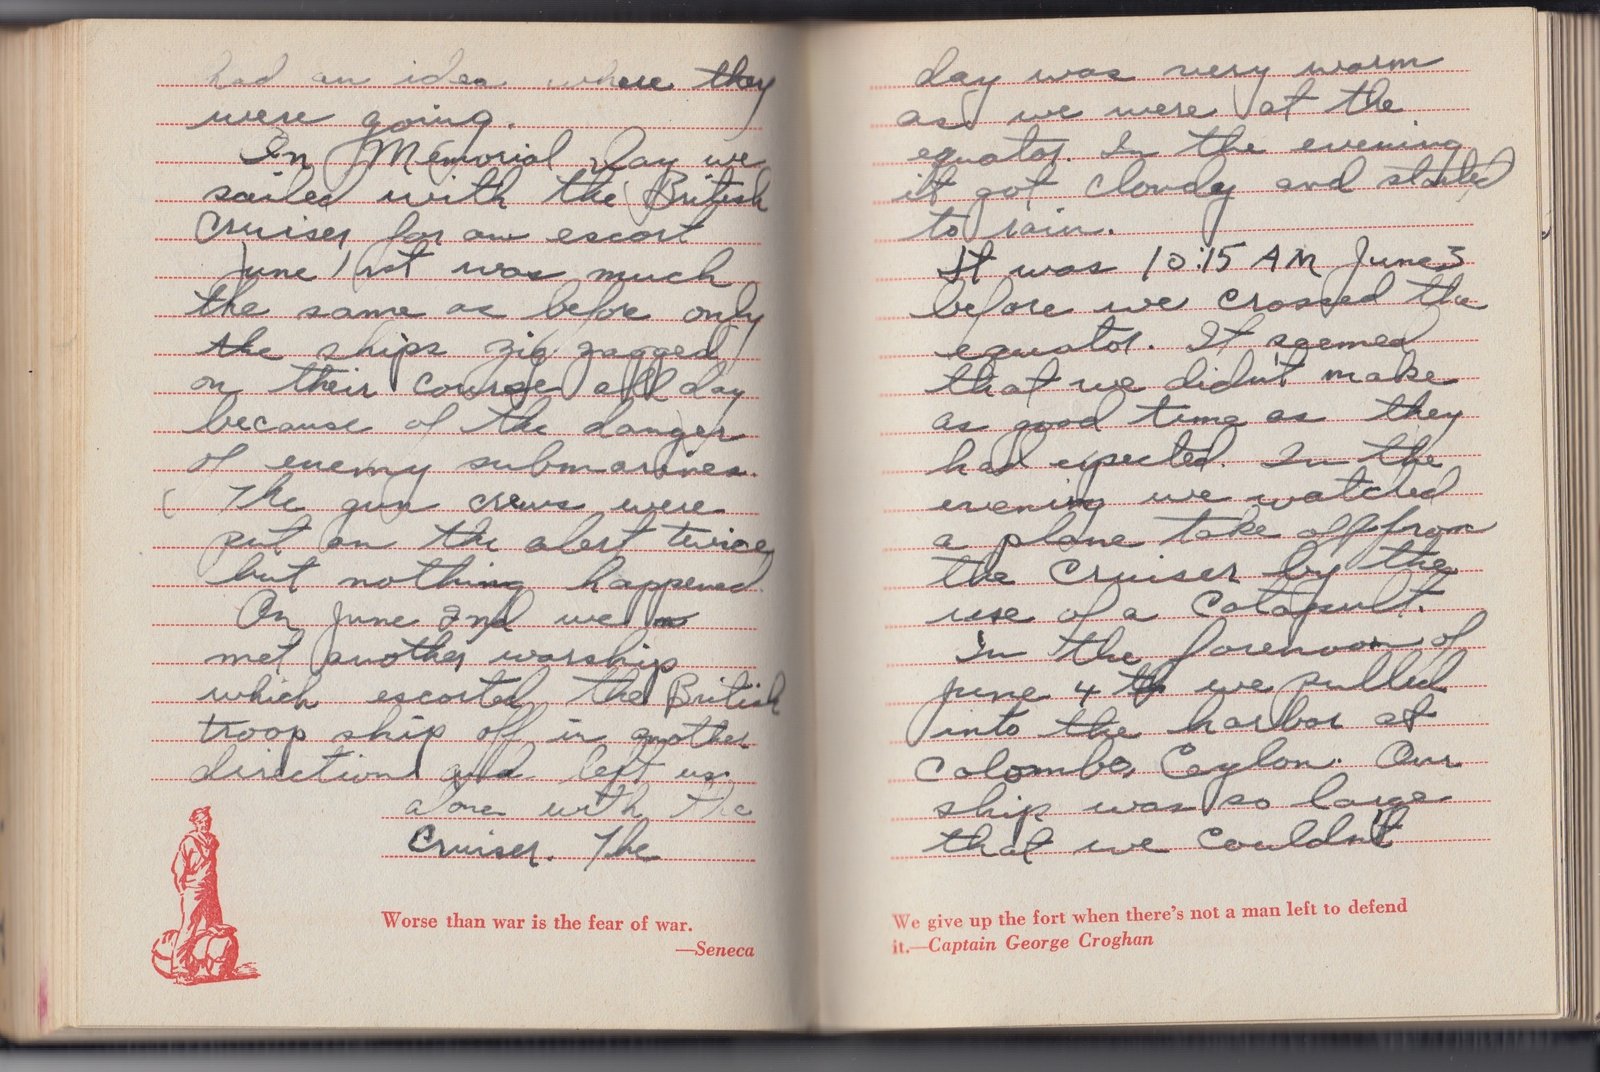 had an idea where they
were going.
In Memorial Day we
sailed with the British
Cruiser for an escort
June 1rst was much
the same as before only
the ships zig zagged
on their course all day
because of the danger
of enemy submarines.
The gun crews were
put on the alert twice
but nothing happened
On June 2nd we
met another warship
which escorted the British
troop ship off in another
direction and left us
alone with the
Cruiser. The
Worse than war is the fear of war.
—Seneca
day was very warm
as we were at the
equator. In the evening
it got cloudy and started
to rain.
It was 10:15 AM June 3
before we crossed the
equator. It seemed
that we didn't make
as good time as they
had expected. In the
evening we watched
a plane take off from
the Cruiser by the
use of a Catapult.
In the forenoon of
June 4th we pulled
into the harbor at
Colombo, Ceylon. Our
ship was so large
that we couldn't
We give up the fort when there's not a man left to defend
it.—Captain George Croghan